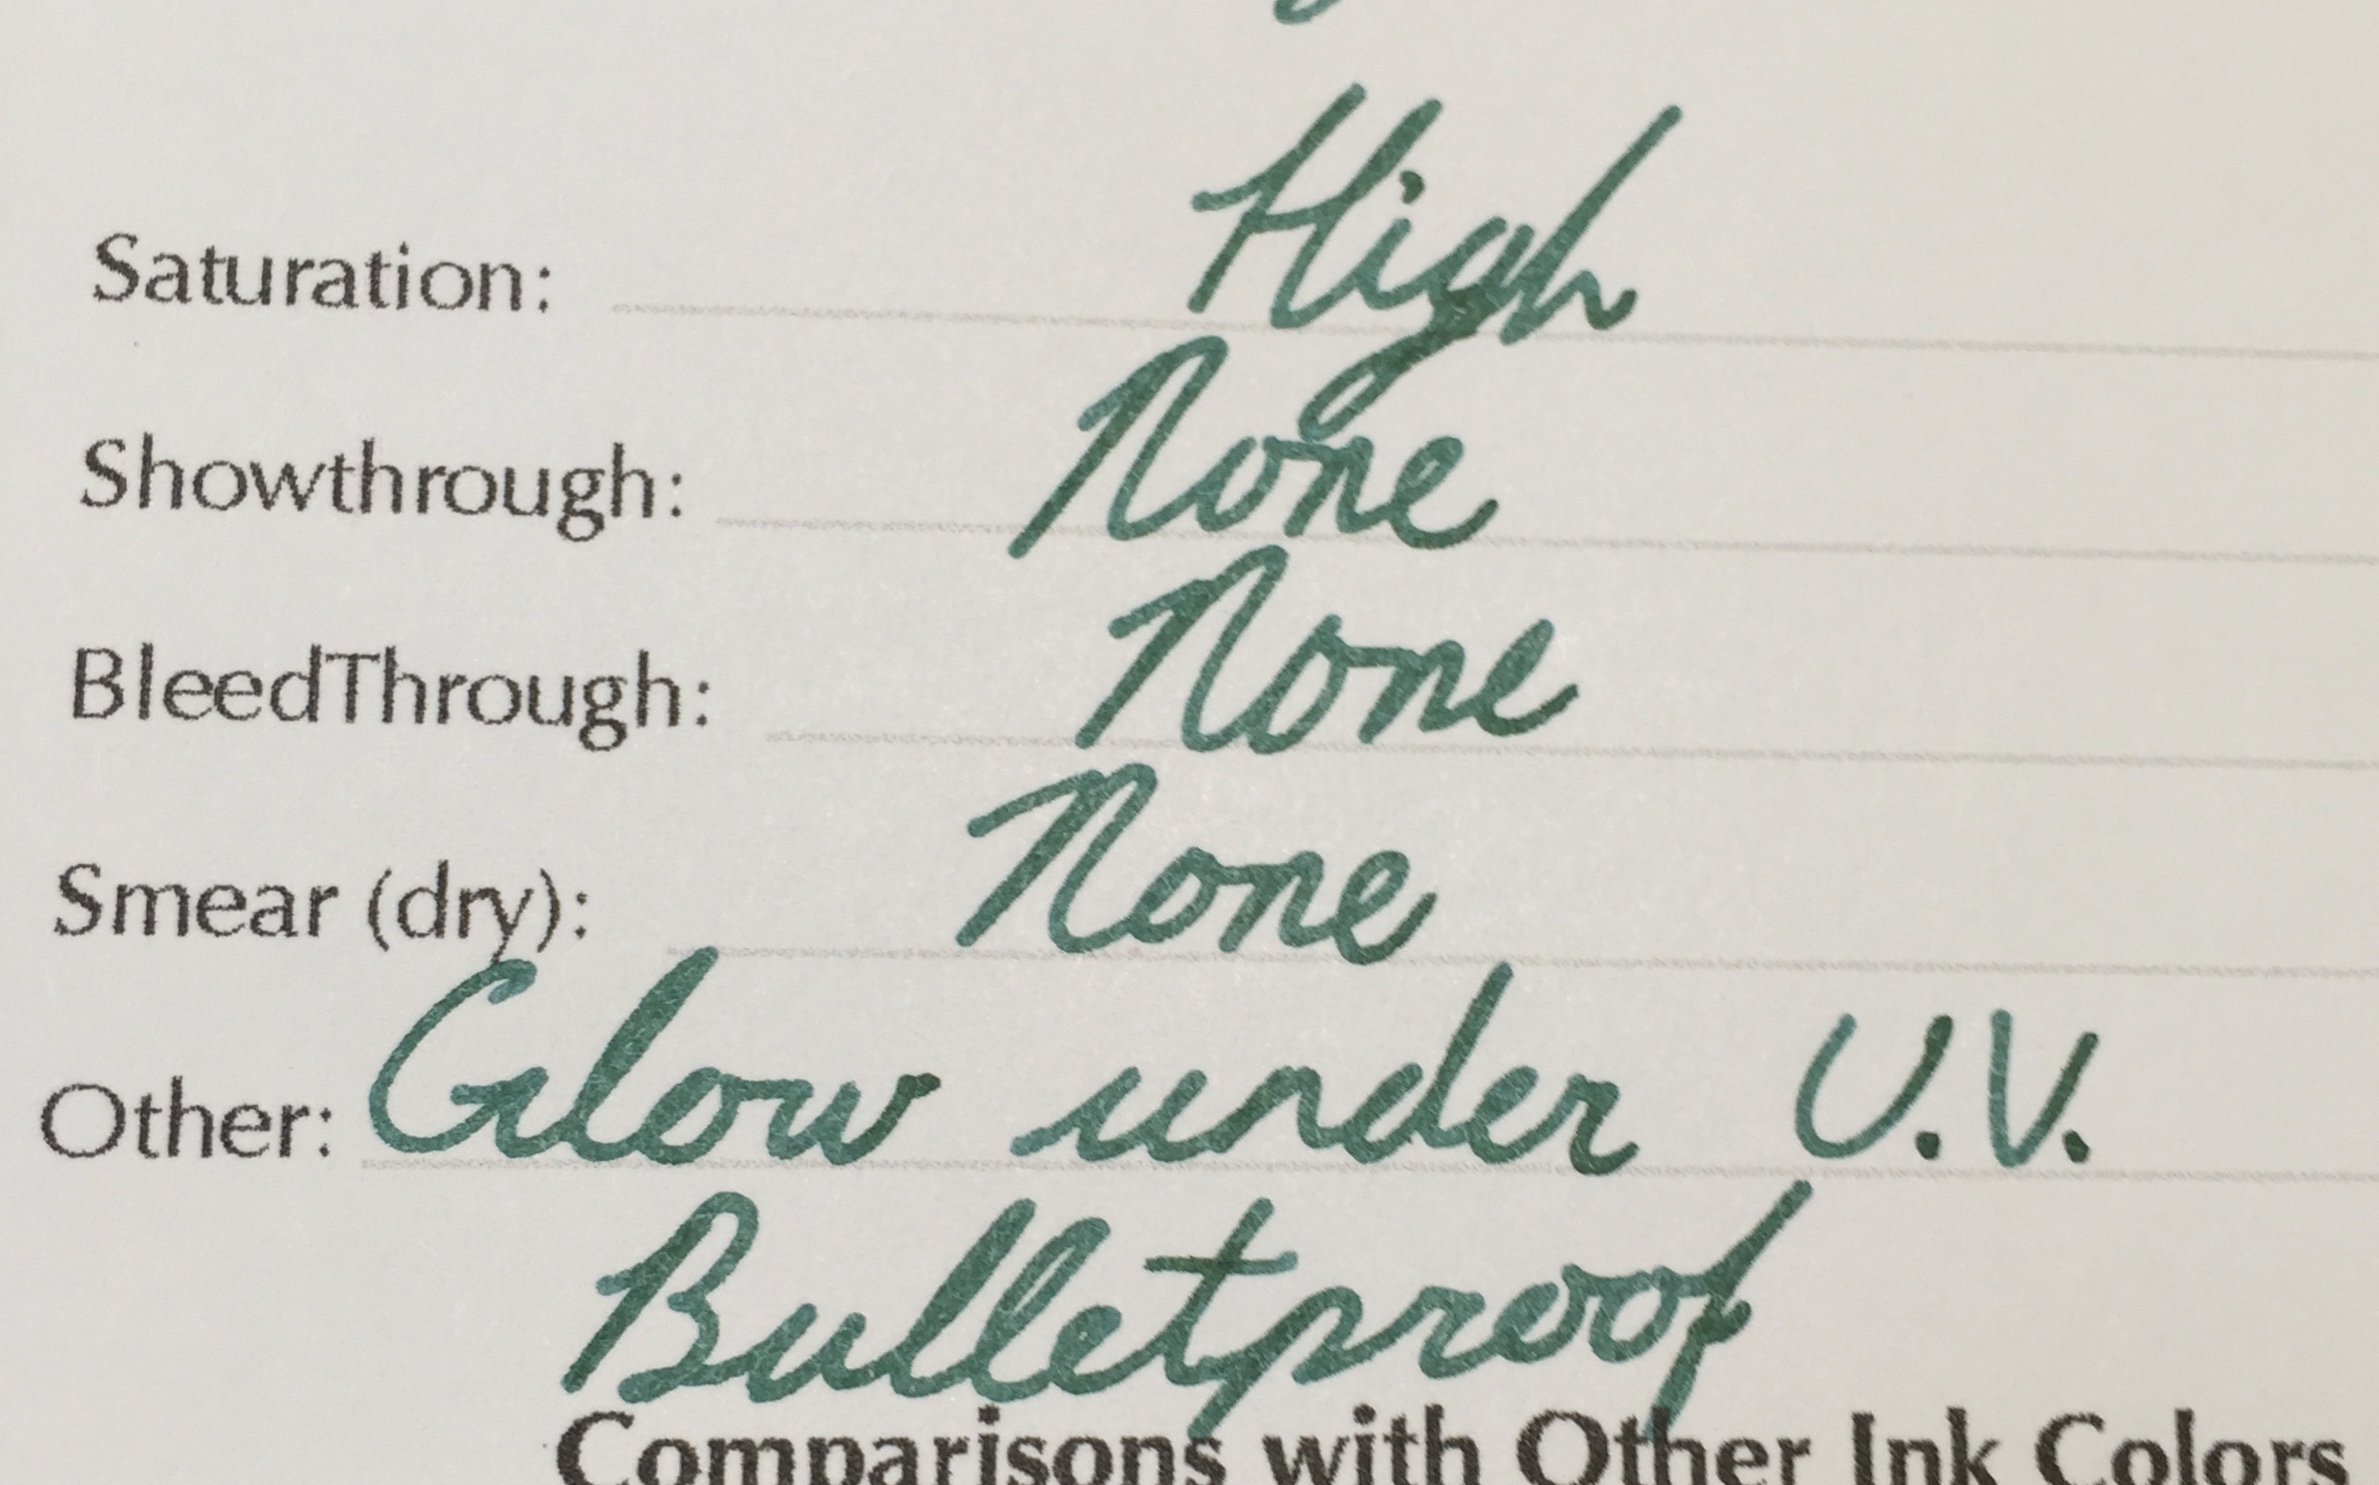 Saturation: High
Showthrough: None
BleedThrough: None
Smear (dry): None
Other: Glow under U.V.
Bulletproof
Comparisons with Other Ink Colors